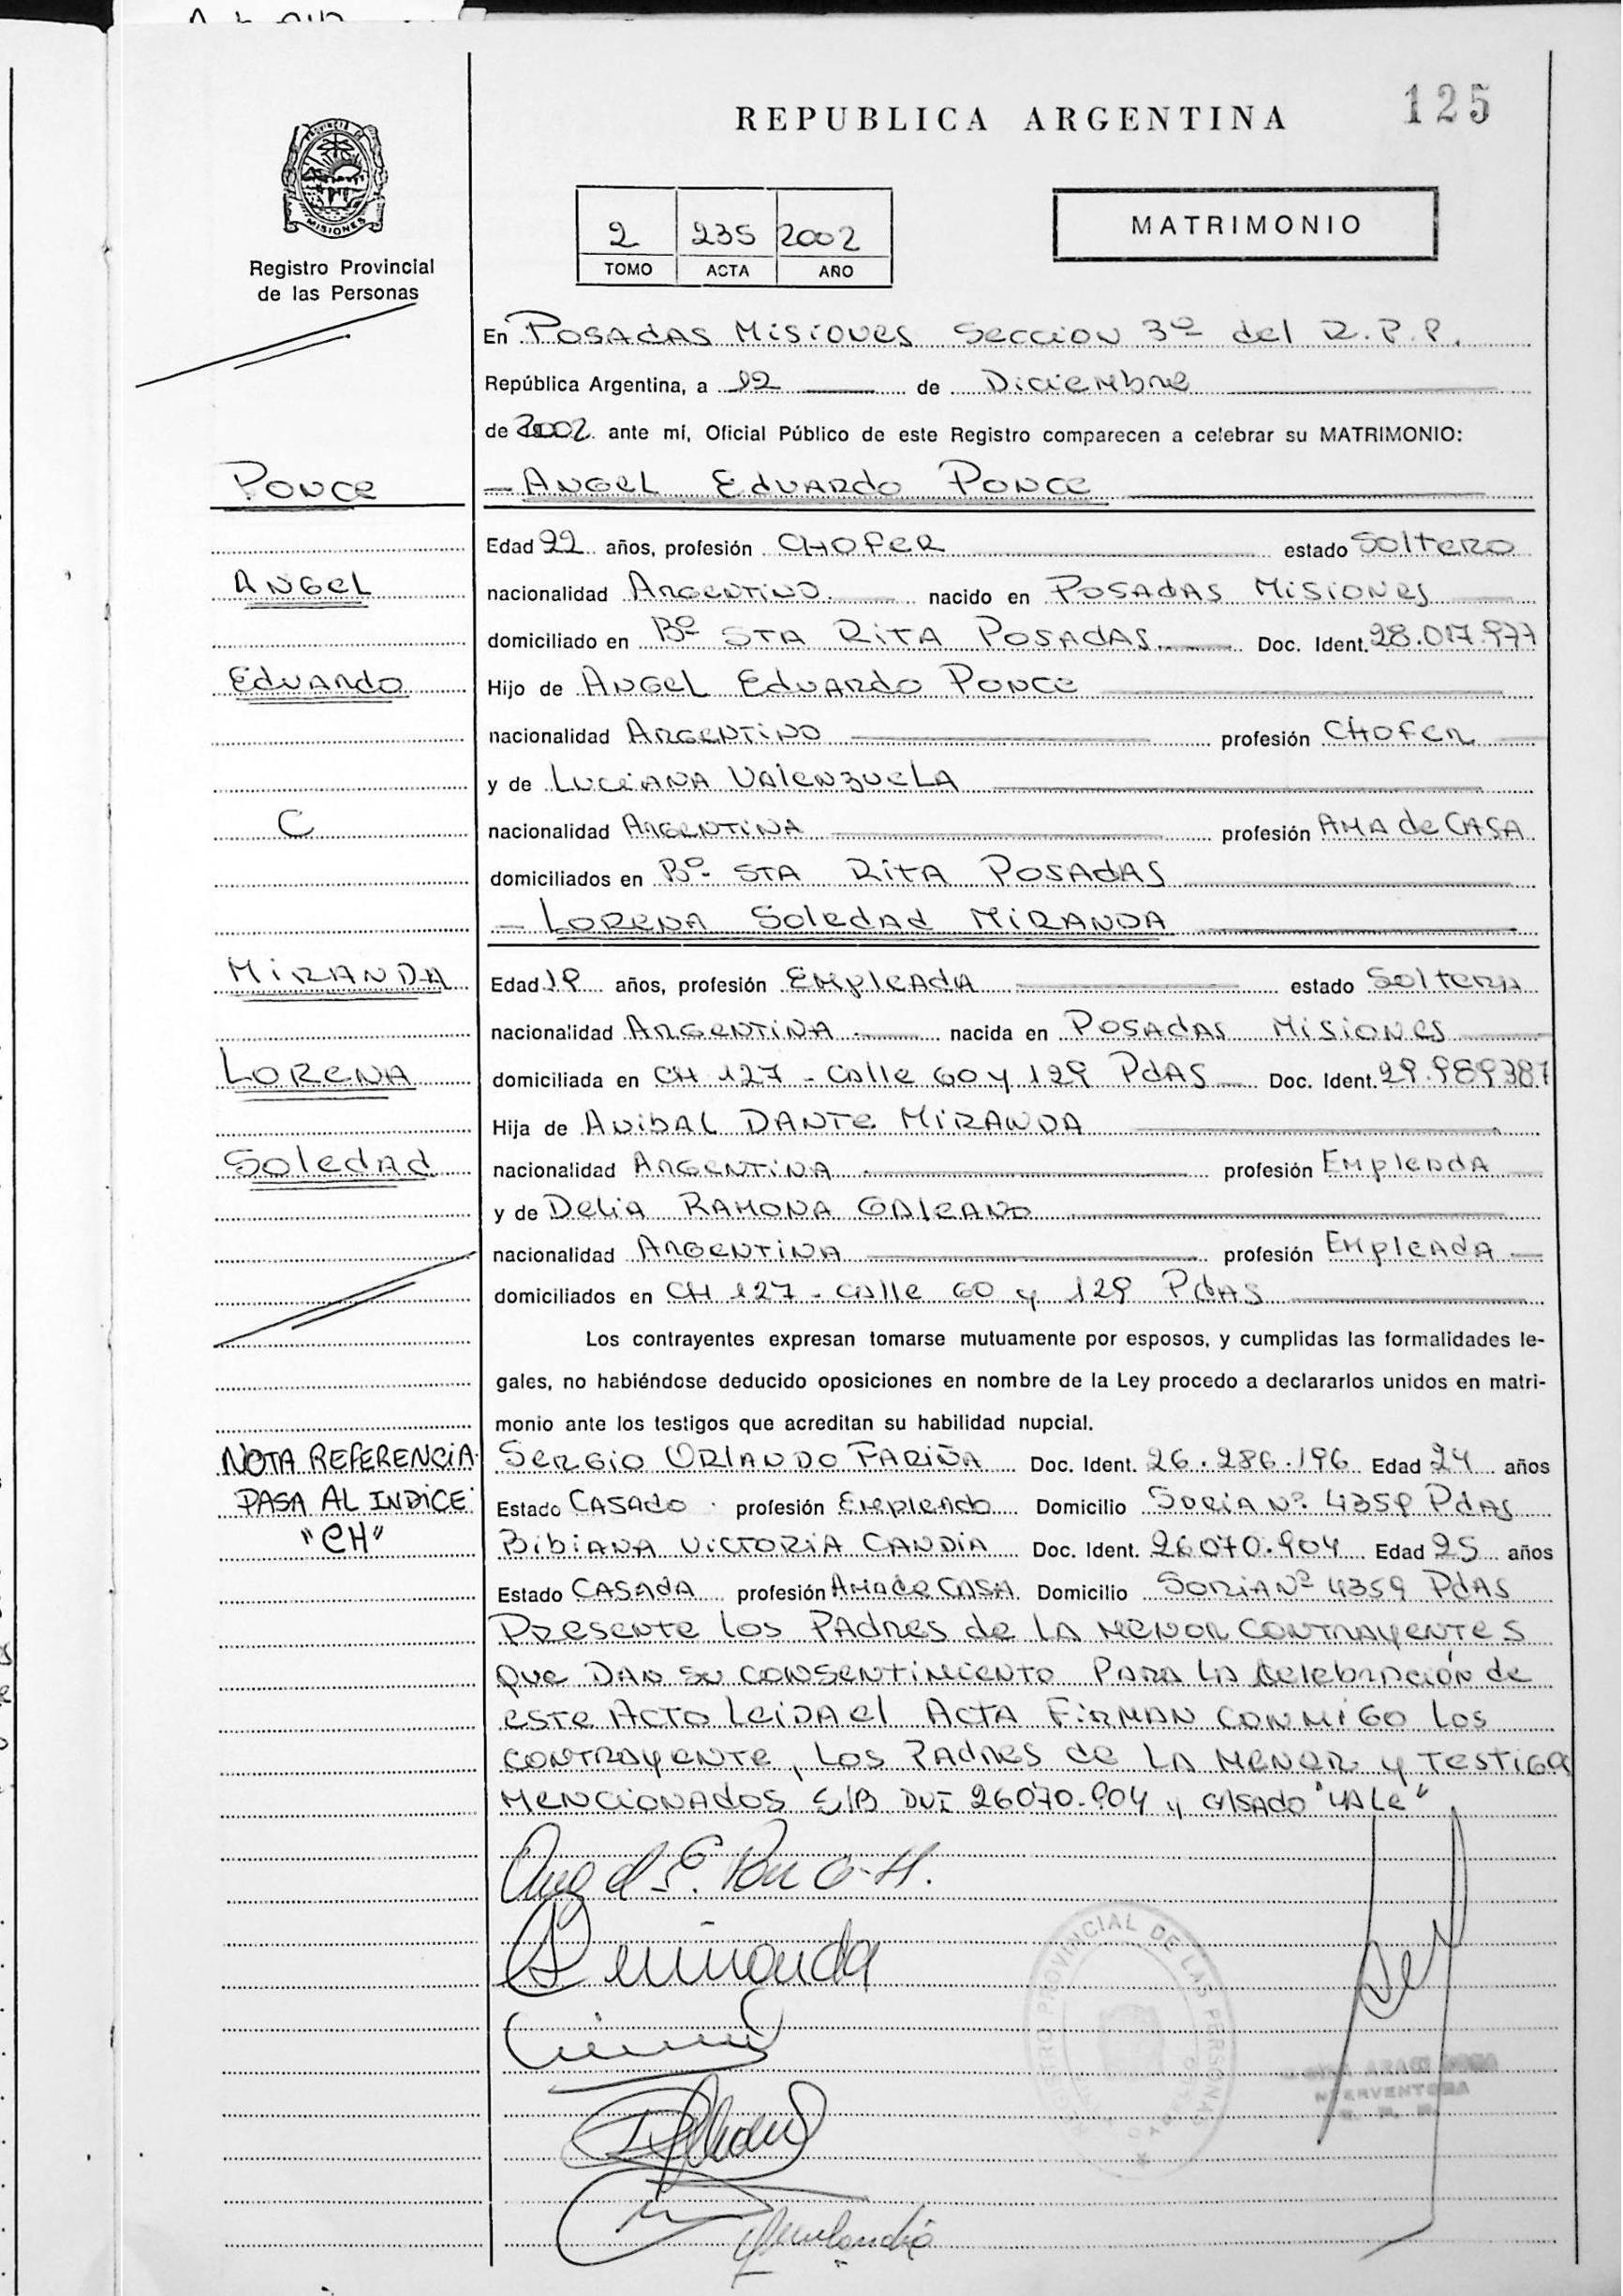 125
REPUBLICA ARGENTINA
MATRIMONIO
MISIONES
Registro Provincial
de las Personas
2 235 2002
TOMO ACTA AÑO
En Posadas Misiones Seccion 3º del R.P.P.
República Argentina, a 12 de Diciembre
de 2002 ante mí, Oficial Público de este Registro comparecen a celebrar su MATRIMONIO:
Ponce
- Angel Eduardo Ponce
Edad 22 años, profesión Chofer estado Soltero
Angel
nacionalidad Argentino nacido en Posadas Misiones
domiciliado en Bº Sta Rita Posadas Doc. Ident. 28.017.977
Eduardo
Hijo de Angel Eduardo Ponce
nacionalidad Argentino profesión Chofer
y de Luciana Valenzuela
C
nacionalidad Argentina profesión Ama de Casa
domiciliados en Bº Sta Rita Posadas
- Lorena Soledad Miranda
Miranda
Edad 19 años, profesión Empleada estado Soltera
nacionalidad Argentina nacida en Posadas Misiones
Lorena
domiciliada en CH 127 - Calle 60 y 129 Pdas Doc. Ident. 29.989387
Hija de Anibal Dante Miranda
Soledad
nacionalidad Argentina profesión Empleada
y de Delia Ramona Galeano
nacionalidad Argentina profesión Empleada
domiciliados en CH 127 - Calle 60 y 129 Pdas
Los contrayentes expresan tomarse mutuamente por esposos, y cumplidas las formalidades le-
gales, no habiéndose deducido oposiciones en nombre de la Ley procedo a declararlos unidos en matri-
monio ante los testigos que acreditan su habilidad nupcial.
NOTA REFERENCIA
PASA AL INDICE
"CH"
Sergio Orlando Fariña Doc. Ident. 26.286.196 Edad 24 años
Estado Casado profesión Empleado Domicilio Soria Nº 4359 Pdas
Bibiana Victoria Candia Doc. Ident. 26070.904 Edad 25 años
Estado Casada profesión Ama de Casa Domicilio Soria Nº 4359 Pdas
Presente los Padres de la menor contrayentes
que dan su consentimiento para la celebración de
este acto Leida el Acta firman conmigo los
contrayente, los Padres de la menor y testigo
mencionados S/B DNI 26070.904 y casado "Vale"
REGISTRO PROVINCIAL DE LAS PERSONAS
INTERVENTORA